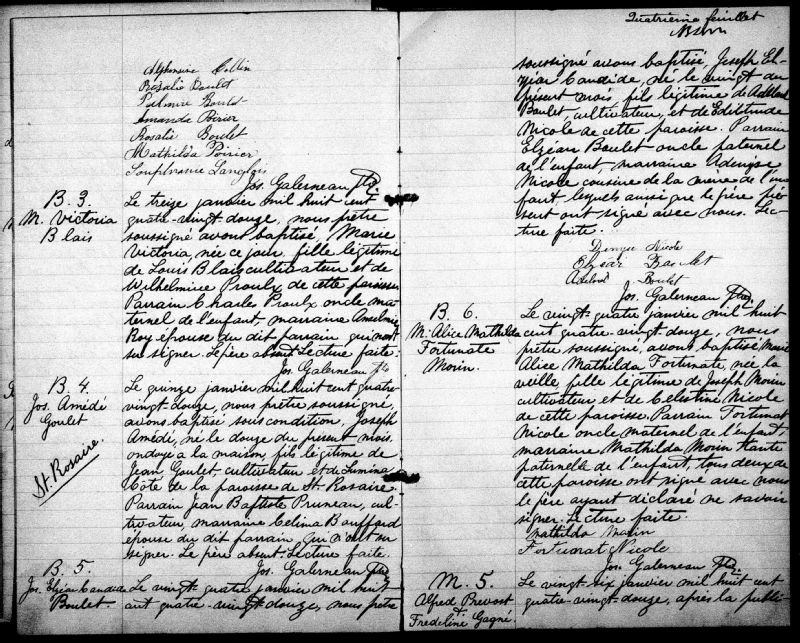 Alphonsine Collin
Rosalie Boulet
Palmire Boulet
Amanda Poirier
Rosalie Boulet
Mathilda Poirier
Symphorence Langlois
Jos. Galerneau Ptre
B. 3.
M. Victoria
Blais
Le treize janvier mil huit cent
quatre-vingt douze, nous prêtre
soussigné avons baptisé, Marie
Victoria, née ce jour, fille légitime
de Louis Blais cultivateur et de
Wilhelmice Proulx de cette paroisse
Parrain Charles Proulx oncle ma-
ternel de l'enfant, marraine Anselmie
Roy épouse du dit parrain qui n'ont
su signer. Le père absent Lecture faite.
Jos. Galerneau Ptre
B. 4.
Jos. Amédé
Goulet
St. Rosaire.
Le quinze janvier mil huit cent quatre
vingt-douze, nous prêtre soussigné,
avons baptisé sous condition, Joseph
Amédé, né le douze du présent mois,
ondoyé à la maison, fils légitime de
Jean Goulet cultivateur et de Lumina
Côté de la paroisse de St. Rosaire.
Parrain Jean Baptiste Pruneau, cul-
tivateur, marraine Celina Bouffard
épouse du dit parrain, qui n'ont su
signer. Le père absent. Lecture faite.
Jos. Galerneau Ptre
B. 5.
Jos. Elzéar Candide
Boulet
Le vingt quatre janvier mil huit
cent quatre-vingt douze, nous prêtre
Quatrième feuillet
soussigné avons baptisé, Joseph El-
zéar Candide, né le vingt du
présent mois, fils légitime de Adélard
Boulet, cultivateur, et de Edilitude
Nicole de cette paroisse. Parrain
Elzéar Boulet oncle paternel
de l'enfant, marraine Adenyse
Nicole cousine de la mère de l'en-
fant, lesquels aussi que le père pré-
sent ont signé avec nous. Lec-
ture faite.
Denyse Nicole
Elzéar Boulet
Adélard Boulet
Jos. Galerneau Ptre
B. 6.
M. Alice Mathilda
Fortunate
Morin.
Le vingt quatre janvier mil huit
cent quatre-vingt douze, nous
prêtre soussigné, avons baptisé, Marie
Alice Mathilda Fortunate, née la
veille, fille légitime de Joseph Morin
cultivateur et de Celestine Nicole
de cette paroisse. Parrain Fortunat
Nicole oncle maternel de l'enfant
marraine Mathilda Morin tante
paternelle de l'enfant, tous deux de
cette paroisse ont signé avec nous
le père ayant déclaré ne savoir
signer. Lecture faite.
Mathilda Morin
Fortunat Nicole
Jos. Galerneau Ptre
M. 5.
Alfred Prevost
&
Fredeline Gagné.
Le vingt six janvier mil huit cent
quatre-vingt-douze, après la publi-